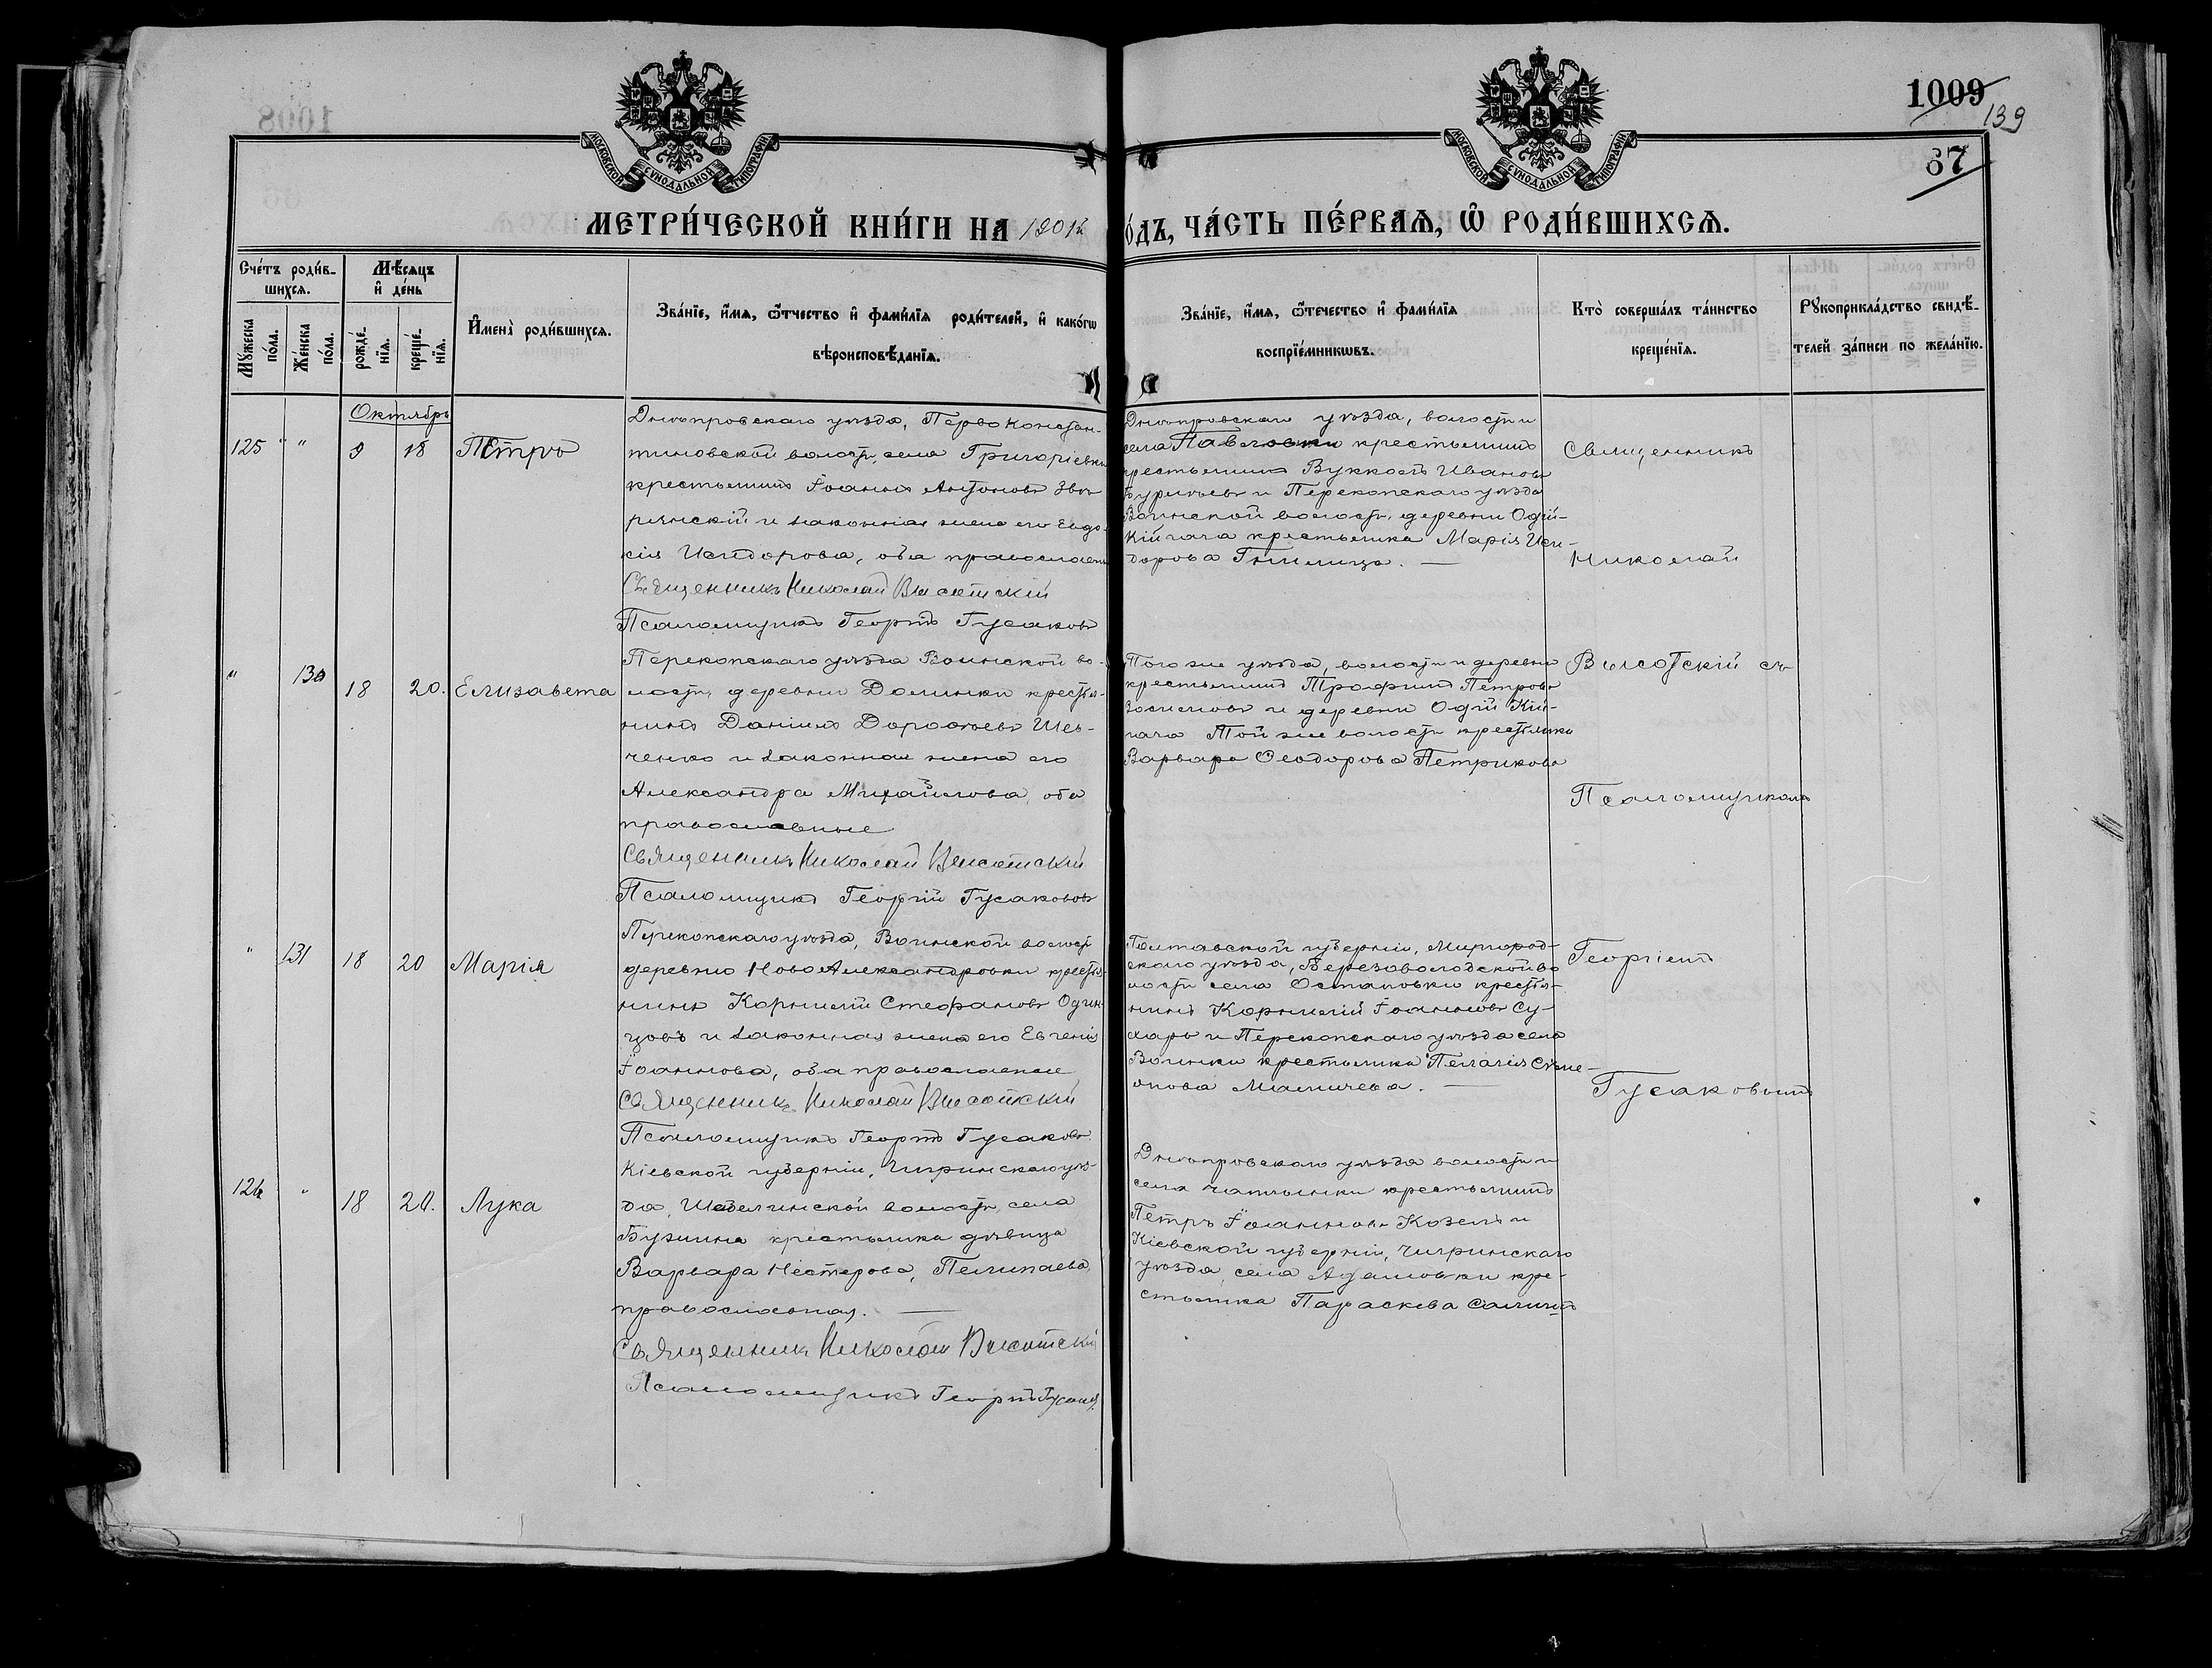 1009
139
67
МОСКОВСКОЙ СУНОДАЛЬНОЙ ТИПОГРАФІИ
МОСКОВСКОЙ СУНОДАЛЬНОЙ ТИПОГРАФІИ
МЕТРИ́ЧЕСКОЙ КНИ́ГИ НА 1901
О́ДЪ, ЧА́СТЬ ПЕ́РВАѦ, Ѡ҆ РОДИ́ВШИХСѦ.
Сче́тъ роди́в-
шихсѧ.
Мѣ́сѧцъ
и҆ де́нь
Мꙋ́жеска по́ла.
Же́нска по́ла.
рожде́нїѧ.
креще́нїѧ.
И҆мена̀ роди́вшихсѧ.
Зва́нїе, и҆́мѧ, ѻ҆́тчество и҆ фами́лїѧ роди́телей, и҆ како́гѡ
вѣроисповѣ́данїѧ.
Зва́нїе, и҆́мѧ, ѻ҆те́чество и҆ фами́лїѧ
воспрїе́мникѡвъ.
Кто̀ соверша́лъ та́инство
креще́нїѧ.
Рꙋкоприкла́дство свидѣ́-
телей за́писи по жела́нїю.
Октябрь
125 " 9 18 Петръ
Днѣпровскаго уѣзда, Перво Констан-
тиновской волости, села Григоріевки
крестьянинъ Іоаннъ Антоновъ Звѣ-
рянскій и законная жена его Евдо-
кія Исидорова, оба православны
Священникъ Николай Высотскій
Псаломщикъ Георгій Гусаковъ
Днѣпровскаго уѣзда, волости и
села Павловки крестьянинъ
крестьянинъ Вукколъ Ивановъ
и Перекопскаго уѣзда
Воинской волости, деревни Одій-
Кійгача крестьянка Марія Иси-
дорова Гнилица.
Священникъ
Николай
Высотскій съ
Псаломщикомъ
Георгіемъ
Гусаковымъ
" 130 18 20. Елизавета
Перекопскаго уѣзда Воинской во-
лости, деревни Долинки крестья-
нинъ Даніилъ Дороѳеевъ Шев-
ченко и законная жена его
Александра Михайлова, оба
православные
Священникъ Николай Высотскій
Псаломщикъ Георгій Гусаковъ
Того же уѣзда, волости и деревни
крестьянинъ Трофимъ Петровъ
и деревни Одій Кій-
гача той же волости крестьянка
Варвара Ѳеодорова Петрикова
" 131 18 20 Марія
Перекопскаго уѣзда, Воинской волости
деревню Ново Александровки крестья-
нинъ Корнилій Стефановъ Один-
цовъ и законная жена его Евгенія
Іоаннова, оба православные
Священникъ Николай Высотскій
Псаломщикъ Георгій Гусаковъ
Полтавской губерніи, Миргород-
скаго уѣзда, Березоволодской во
лости села Остаповки крестья-
нинъ Корнилій Іоанновъ Су-
харь и Перекопскаго уѣзда села
Воинки крестьянка Пелагія Симе-
онова Мамичева.
126 " 18 20. Лука
Кіевской губерніи, Чигринскаго уѣз-
да, Шабелинской волости, села
Бужина крестьянка дѣвица
Варвара Нестерова, Пелипаева,
православная.
Священникъ Николай Высотскій
Псаломщикъ Георгій Гусаковъ
Днѣпровскаго уѣзда волости и
села Чаплынки крестьянинъ
Петръ Іоанновъ Козелъ и
Кіевской губерніи, Чигринскаго
уѣзда, села Адамовки кре-
стьянка Параскева